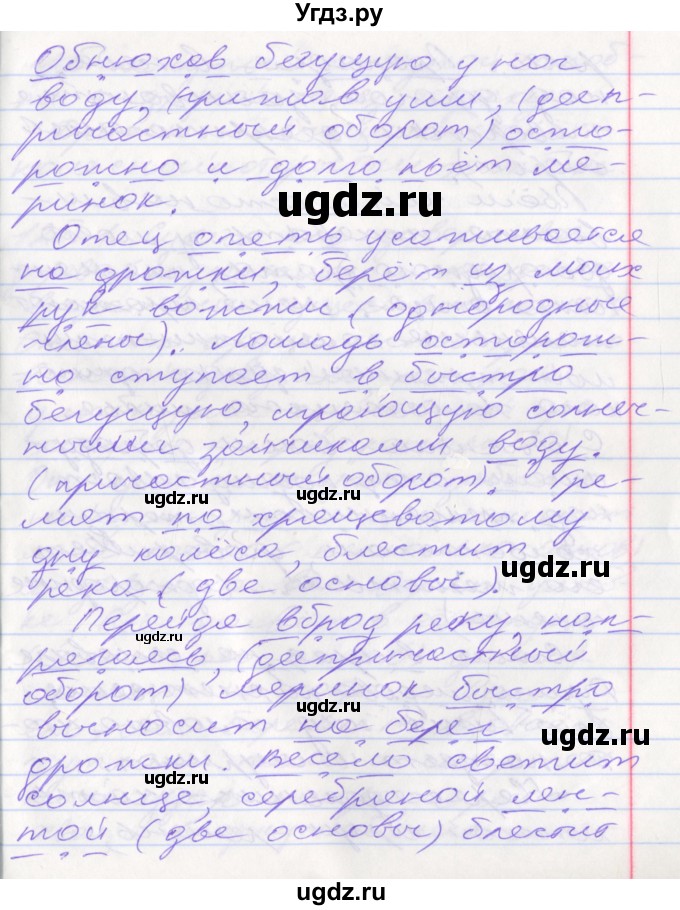 Угдз.ру
Обнюхав бегущую у ног
воду, прижав уши, (дееп-
ричастный оборот) осто-
рожно и долго пьёт ме-
ринок.
ugdz.ru
Отец опять усаживается
на дрожки, берёт из моих
рук вожжи (однородные
члены). Лошадь осторож-
но ступает в быстро
бегущую, играющую солнеч-
ными зайчиками воду.
(причастный оборот). Гре-
ugdz.ru
мят по хрящеватому
дну колёса, блестит
ugdz.ru
река (две основы).
Перейдя вброд реку, нап-
ugdz.ru
рягаясь, (деепричастный
оборот) меринок быстро
выносит на берег
ugdz.ru
дрожки. Весело светит
ugdz.ru
солнце, серебряной лен-
той (две основы) блестит
ugdz.ru